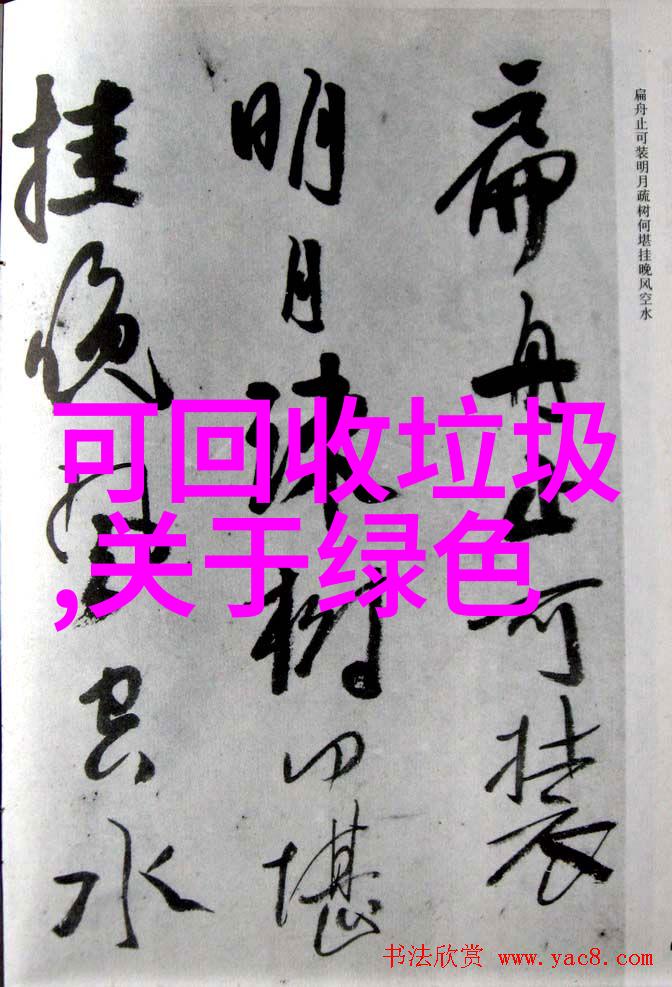 扁舟止可装
明月疎树何堪
挂晚风空水
扁舟止可装明月疏树何堪挂晚风空水
可回收垃圾
,关于绿色
书法欣赏 www.yac8.com